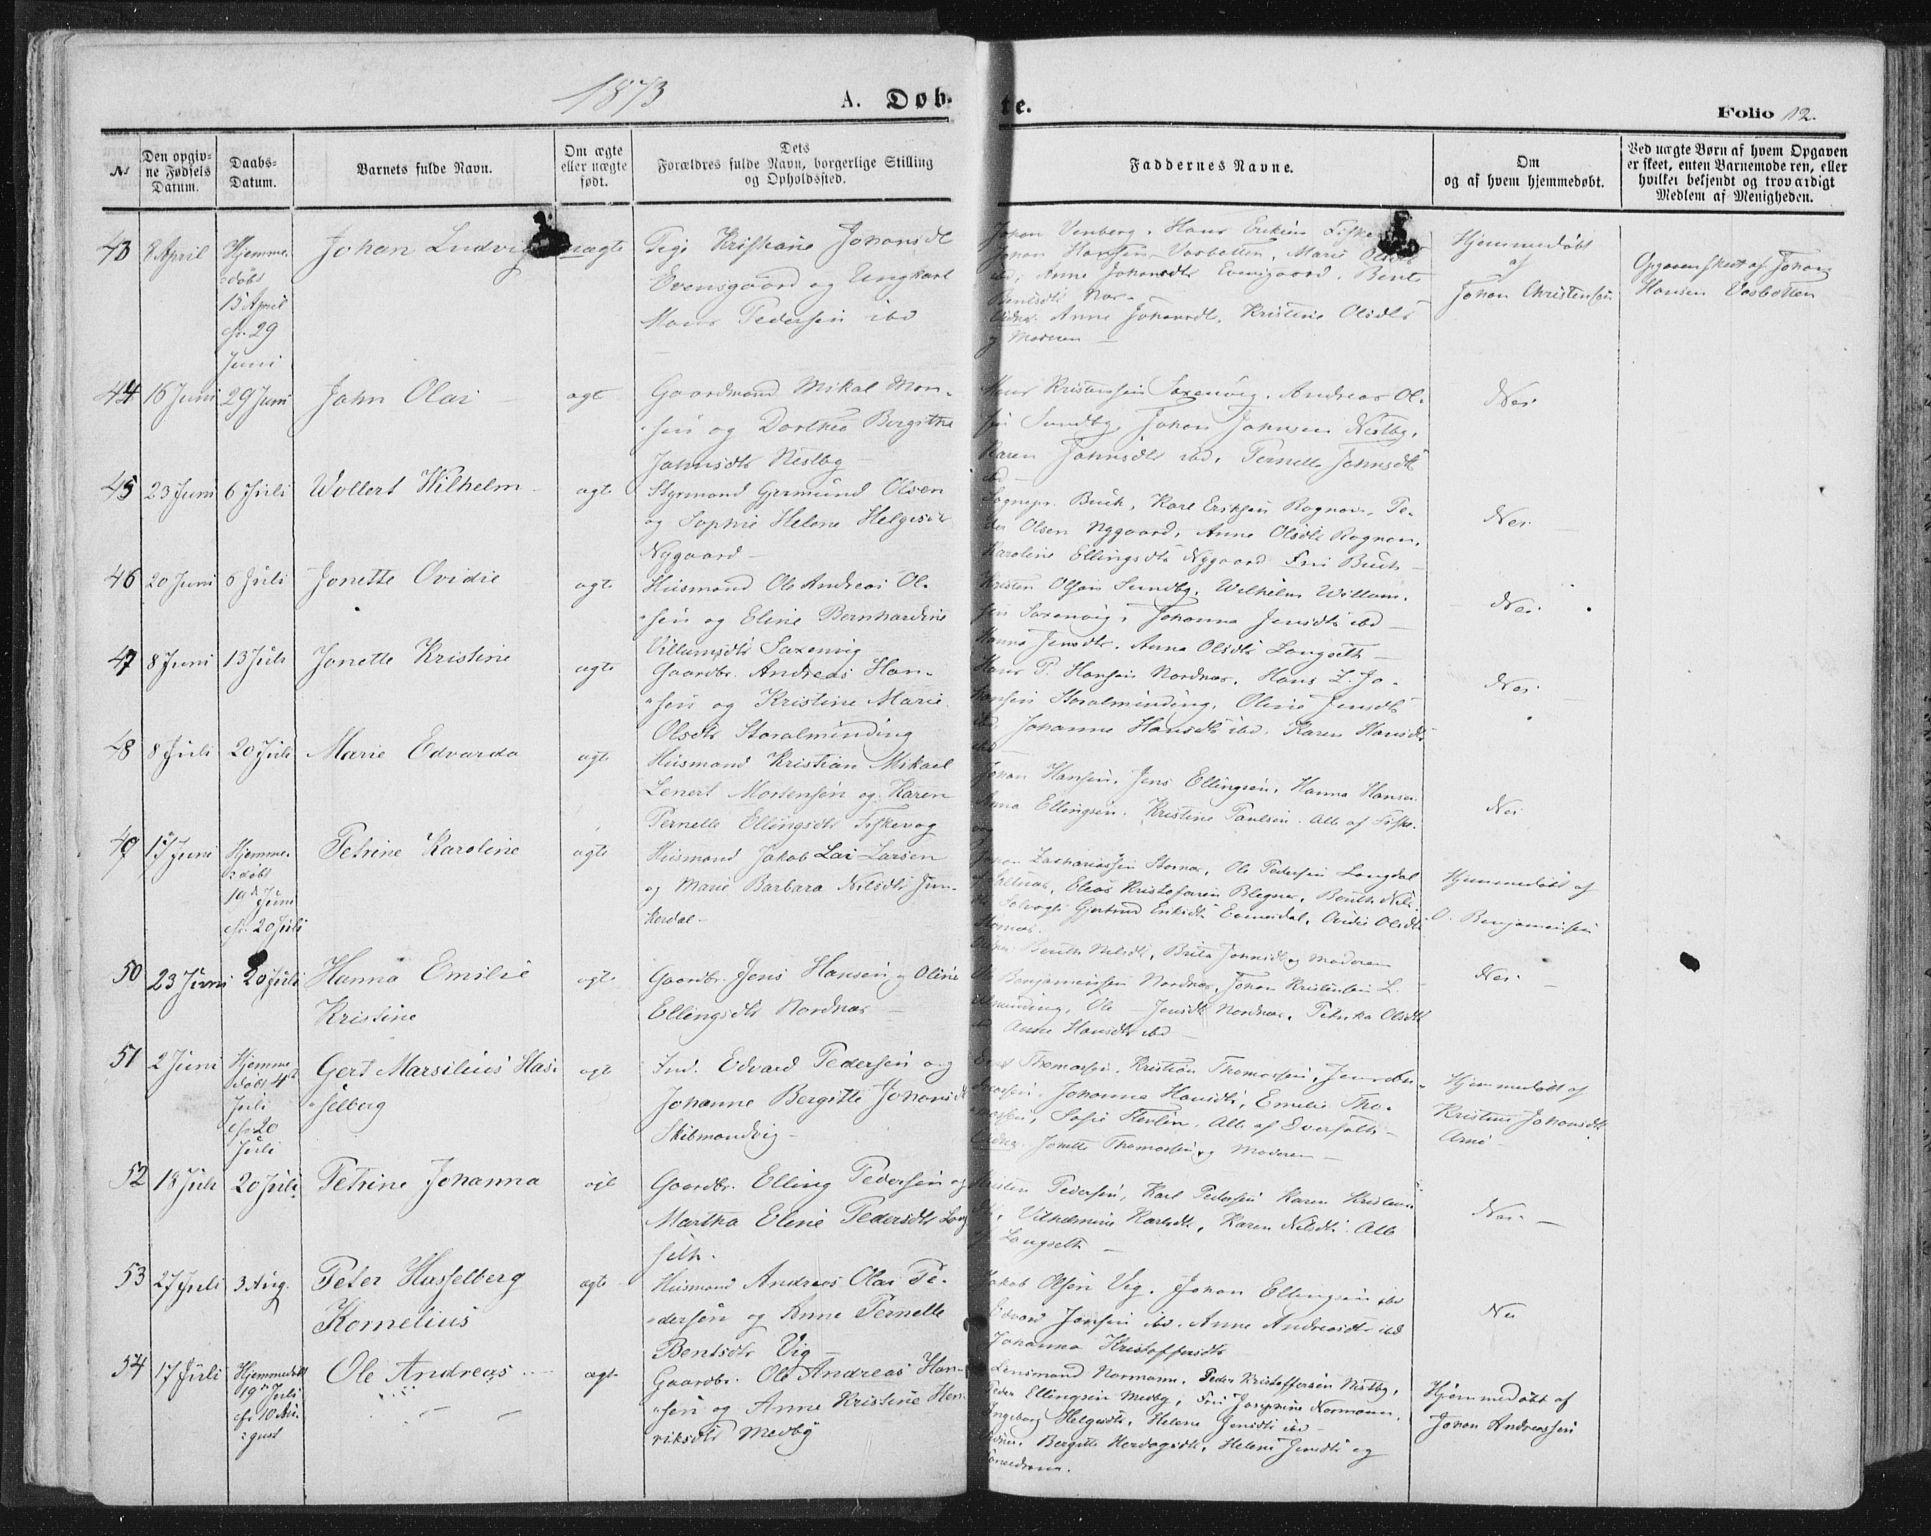 1873
A. Døb-
te.
Folio 12.
No
Den opgiv-
ne Fødsels
Datum.
Daabs-
Datum.
Barnets fulde Navn.
Om ægte
eller uægte
født.
Dets
Forældres fulde Navn, borgerlige Stilling
og Opholdssted.
Faddernes Navne.
Om
og af hvem hjemmedøbt.
Ved uægte Børn af hvem Opgaven
er skeet, enten Barnemoderen, eller
hvilket bekjendt og troværdigt
Medlem af Menigheden.
43
8 April
Hjemme-
døbt
15 April
cfr. 29
Juni
Johan Ludvig
uægte
Pige Kristiane Johansdt
Evensgaard og Ungkarl
Hans Pedersen ibd
Johan Venberg, Hans Eriksen
Johan Hansen Vasbotten, Marie Olsdtr
ibd, Anne Johansdtr Evensgaard, Bente
Bentsdtr
Anne Johansdt, Kristine Olsdtr
og Moderen
Hjemmedøbt
af
Johan Christensen
Opgaven skeet af Johan
Hansen Vasbotten
44
16 Juni
29 Juni
John Olai
ægte
Gaardmand Mikal Mon-
sen og Dorthea Bergitha
Johnsdtr Nestby
Hans Kristensen Saxenvig, Andreas Ol-
sen Sundby, Johan Johnsen Nestby,
Karen Johnsdtr ibd, Pernelle Johnsdt
ibd
Nei
45
23 Juni
6 Juli
Wollert Wilhelm
ægte
Styrmand Gjermund Olsen
og Sophie Helene Helgesdtr
Nygaard
Sognepr. Buch, Karl Eriksen Rognan, Pe-
der Olsen Nygaard, Anne Olsdtr Rognan,
Karoline Ellingsdtr Nygaard Fru Buch
Nei
46
20 Juni
6 Juli
Jonette Ovidie
ægte
Husmand Ole Andreas Ol-
sen og Eline Bernhardine
Villumsdtr Saxenvig
Kristen Olsen Sundby, Wilhelm Willum-
sen Saxenvig, Johanna Jensdtr ibd
Hanna Jensdtr, Anna Olsdtr Langseth
Nei
47
8 Juni
13 Juli
Jonette Kristine
ægte
Gaardbr. Andreas Han-
sen og Kristine Marie
Olsdtr Storalminding
Hans P. Hansen Nordnes, Hans L. Jo-
hansen Storalminding, Oline Jensdtr
ibd Johanne Hansdtr ibd, Karen Hansdtr
ibd
Nei
48
8 Juli
20 Juli
Marie Edvarda
ægte
Husmand Kristian Mikael
Lenert Mortensen og Karen
Pernelle Ellingsdtr Fiskevog
Johan Hansen, Jens Ellingsen, Hanna Hansen
Anna Ellingsen, Kristine Paulsen. Alle af Fiske-
vog
Nei
49
17 Juni
Hjemme-
døbt
19de Juni
cfr. 20 Juli
Petrine Karoline
ægte
Husmand Jakob Lai Larsen
og Marie Barbara Nilsdtr Jun-
kerdal
Johan Zachariassen Stornes, Ole Pedersen Langdal
Saltnes, Elias Kristofersen Blegnes,
Gjertrud Eriksdtr Evenesdal, Ovidie Olsdtr
Stornes.
Nilsdt, Brita Johnsdt og Moderen
Hjemmedøbt af
O. Benjaminsen
50
23 Juni
20 Juli
Hanna Emilie
Kristine
ægte
Gaardbr. Jens Hansen og Oline
Ellingsdtr Nordnes
Ole Benjaminsen Nordnes, Johan Kristensen L.
Alminding, Ole Jensdt Nordnes, Petrika Olsdtr
ibd Anne Hansdtr ibd
Nei
51
2 Juni
Hjemme-
døbt 4de
Juli
cfr. 20
Juli
Gert Marsilius Has-
selberg
ægte
Ind. Edvard Pedersen og
Johanne Bergitte Johansdt
Skibmandvig
Thomassen, Kristian Thomassen,
Johanna Hansdtr, Emelie Tho-
massen, Sofie Alle af Evensgaard
Jonette Thomassen og Moderen
Hjemmedøbt af
Kristine Johansdtr
Arnø
52
18 Juli
20 Juli
Petrine Johanna
ægte
Gaardbr. Elling Pedersen og
Martha Eline Pedersdtr Lang-
seth.
Kristen Pedersen, Karl Pedersen Karen Kristens-
dtr, Vilhelmine Karlsdt, Karen Nilsdtr. Alle
af Langseth
Nei
53
27 Juli
3 Aug.
Peter Hasselberg
Kornelius
ægte
Husmand Andreas Olai Pe-
dersen og Anne Pernelle
Bentsdtr Vig
Jakob Olsen Vig, Johan Ellingsen ibd
Edvard Jensen ibd, Anne Andreasdtr ibd
Johanna Kristoffersdtr
Nei
54
17 Juli
Hjemmedøbt
19de Juli
cfr. 10 Au-
gust
Ole Andreas
ægte
Gaardbr. Ole Andreas Han-
sen og Anne Kristine Hen-
riksdtr Medby
Lensmand Normann, Peder Kristoffersen Nestby,
Peder Ellingsen Medby, Fru Josephine Normann,
Ingeborg Helgesdtr, Helene Jensdtr ibd
Bergitte Herdagsdtr, Helene Jensdtr og
Moderen.
Hjemmedøbt af
Johan Andreassen